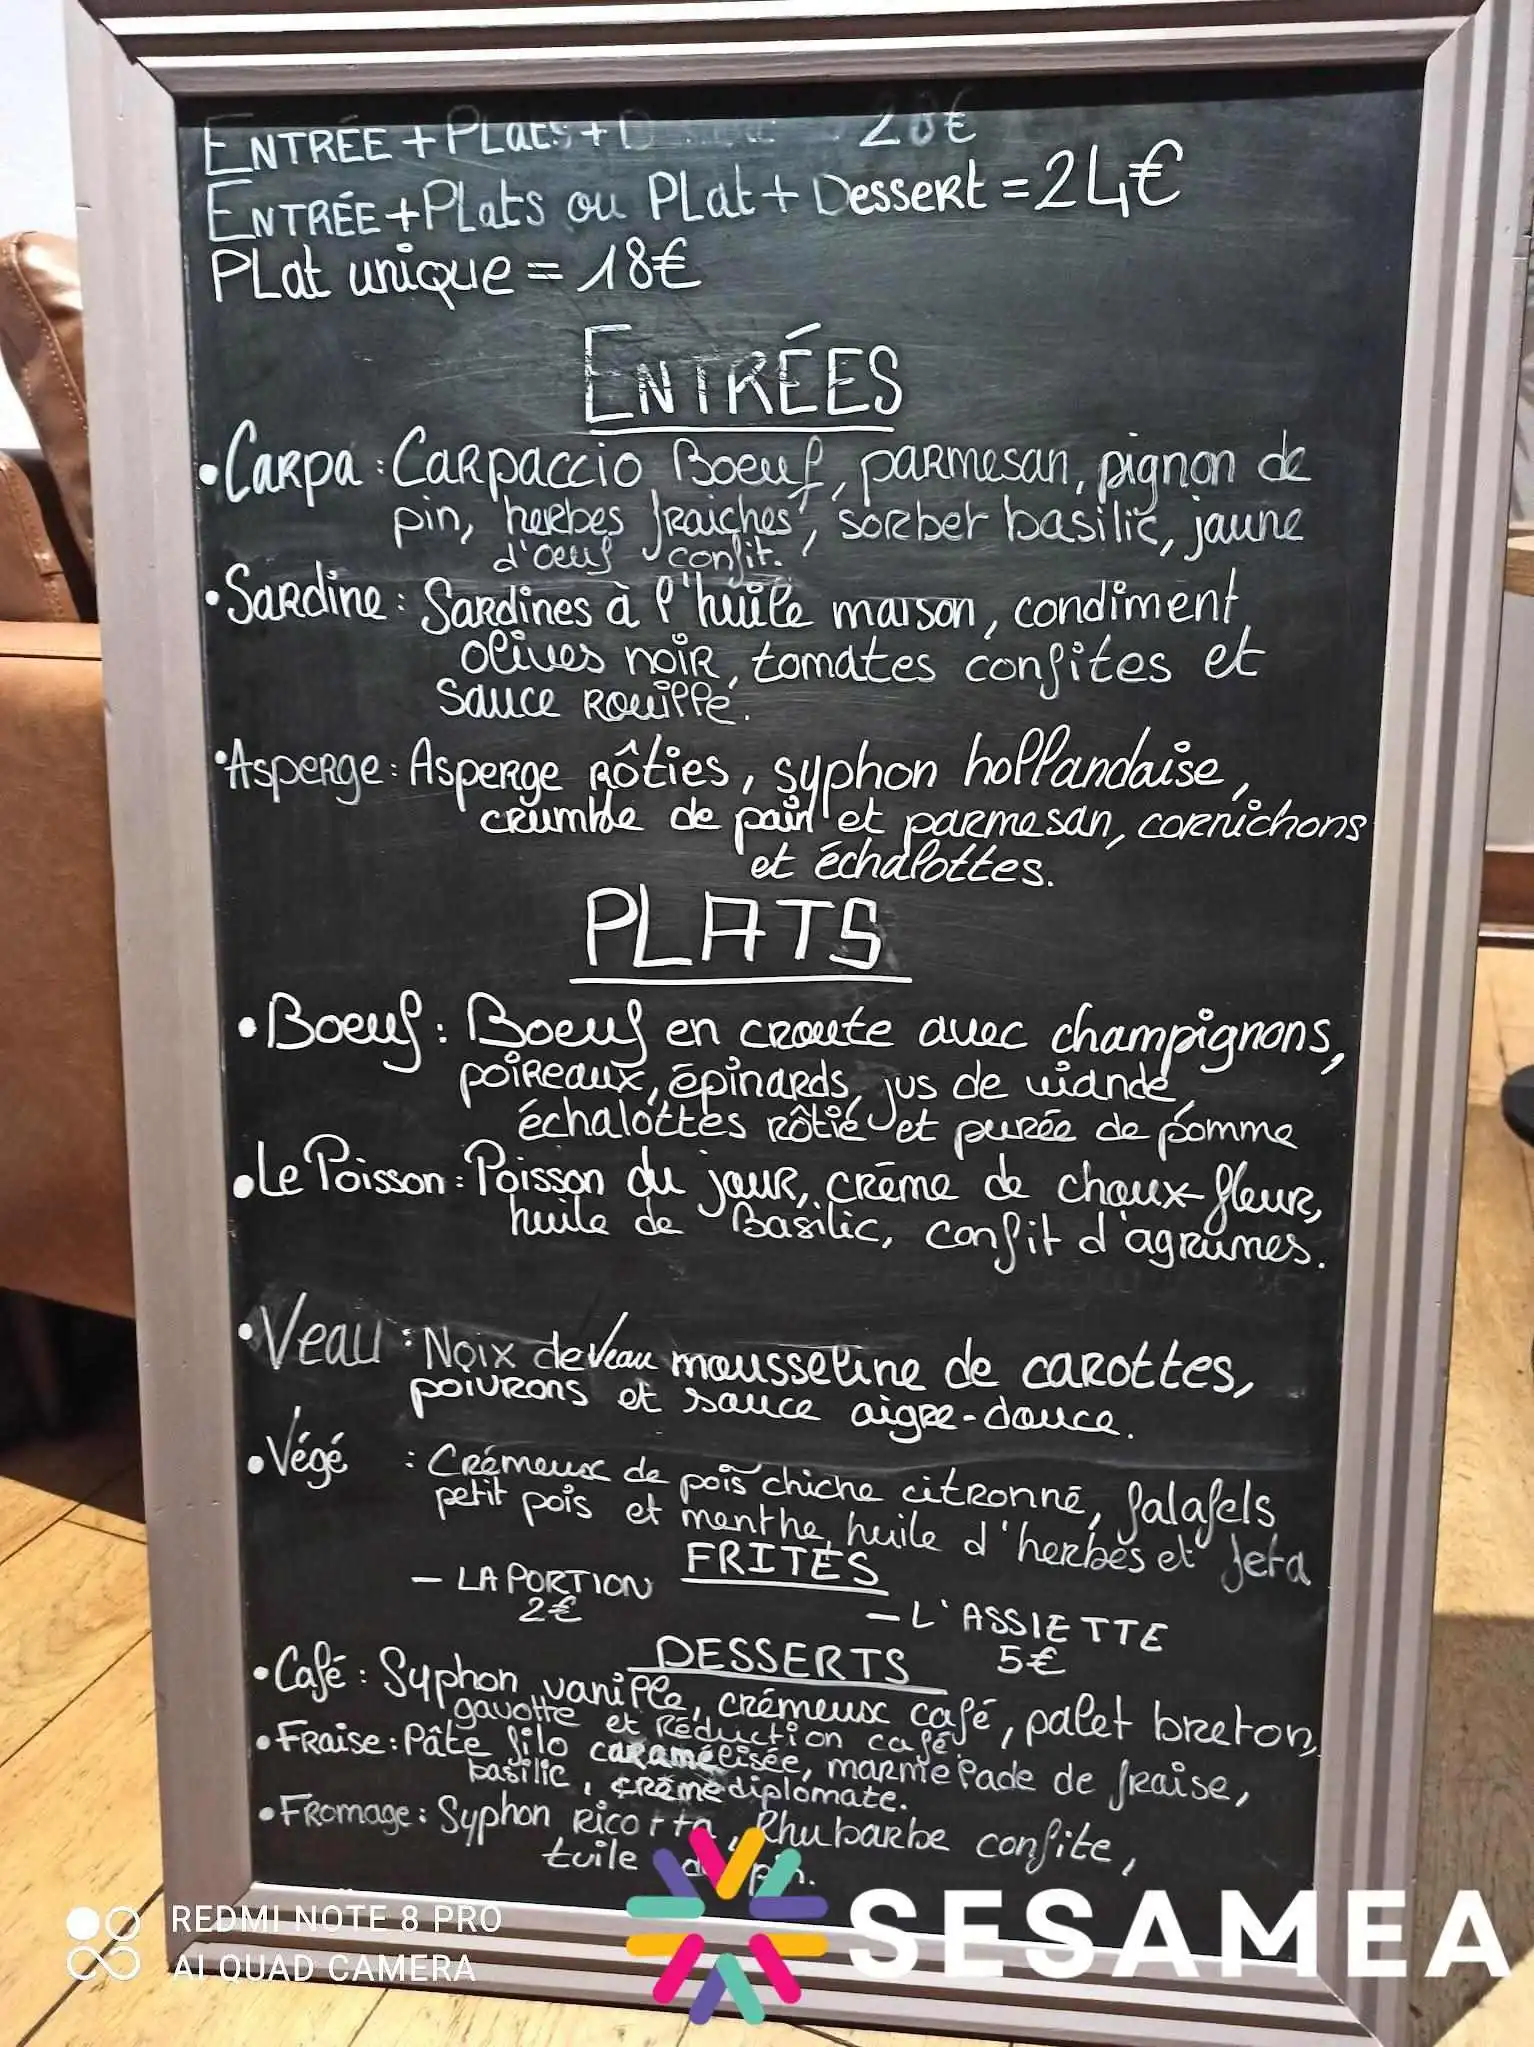 ENTRÉE + PLats + D
ENTRÉE + PLats ou PLat + Dessert = 24€
PLat unique = 18€
ENTRÉES
• Carpa : Carpaccio Boeuf, parmesan, pignon de
pin, herbes fraiches, sorbet basilic, jaune
d'oeuf confit.
• Sardine : Sardines à l'huile maison, condiment
olives noir, tomates confites et
sauce rouille.
• Asperge : Asperge rôties, syphon hollandaise,
crumble de pain et parmesan, cornichons
et échalottes.
PLATS
• Boeuf : Boeuf en croute avec champignons,
poireaux, épinards, jus de viande,
échalottes rôtie et purée de pomme
• Le Poisson : Poisson du jour, crème de chaux-fleur,
huile de Basilic, confit d'agrumes.
• Veau : Noix de Veau mousseline de carottes,
poivrons et sauce aigre-douce.
• Végé : Crémeux de pois chiche citronné, falafels
petit pois et menthe, huile d'herbes et feta
FRITES
– LA PORTION
2€
– L'ASSIETTE
5€
DESSERTS
• Café : Syphon vanille, crémeux café, palet breton,
gavotte et Réduction café.
• Fraise : Pâte filo caramélisée, marmelade de fraise,
basilic, crème diplomate.
• Fromage : Syphon Ricotta, Rhubarbe confite,
tuile pin.
REDMI NOTE 8 PRO
AI QUAD CAMERA
SESAMEA